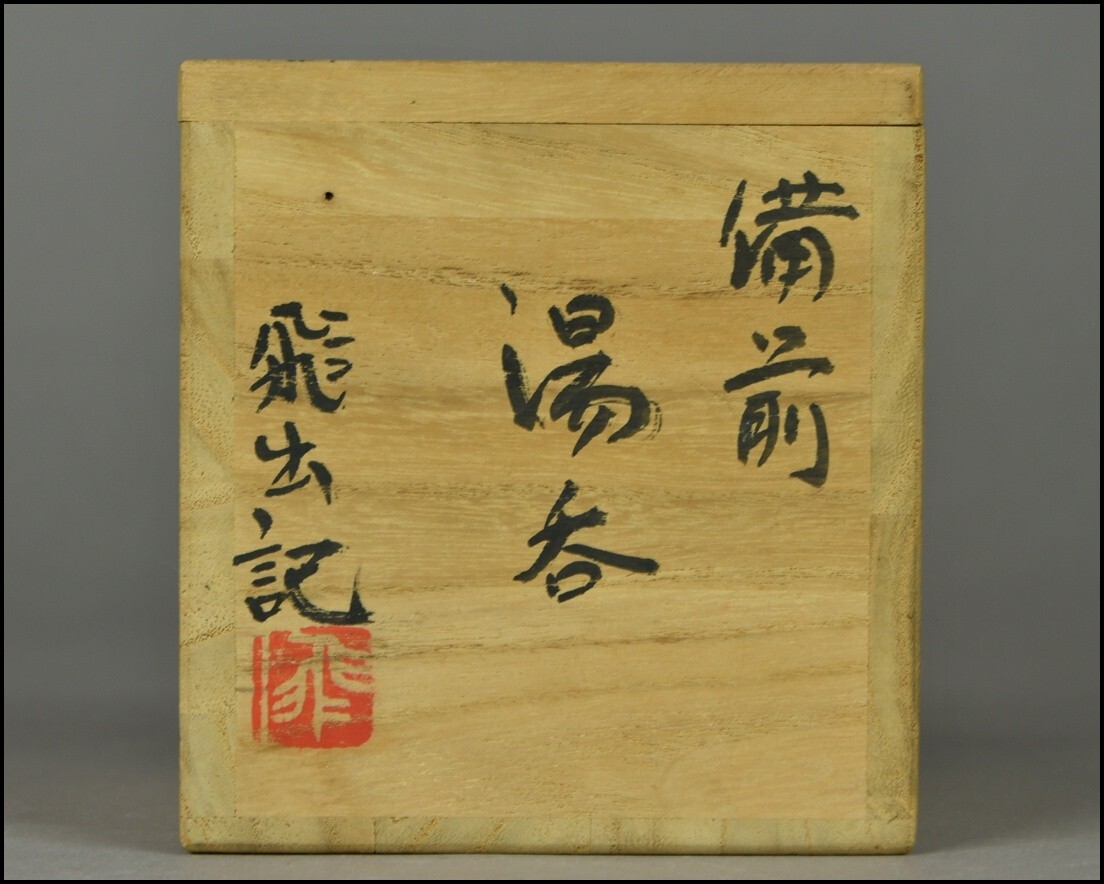 備前
湯呑
飛出記